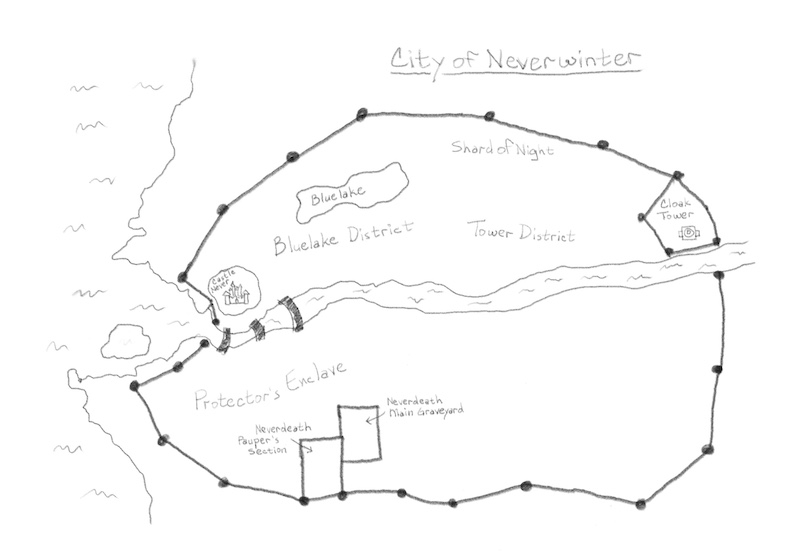 City of Neverwinter
Shard of Night
Bluelake
Cloak
Tower
Bluelake District
Tower District
Castle
Never
Protector's Enclave
Neverdeath
Main Graveyard
Neverdeath
Pauper's
Section